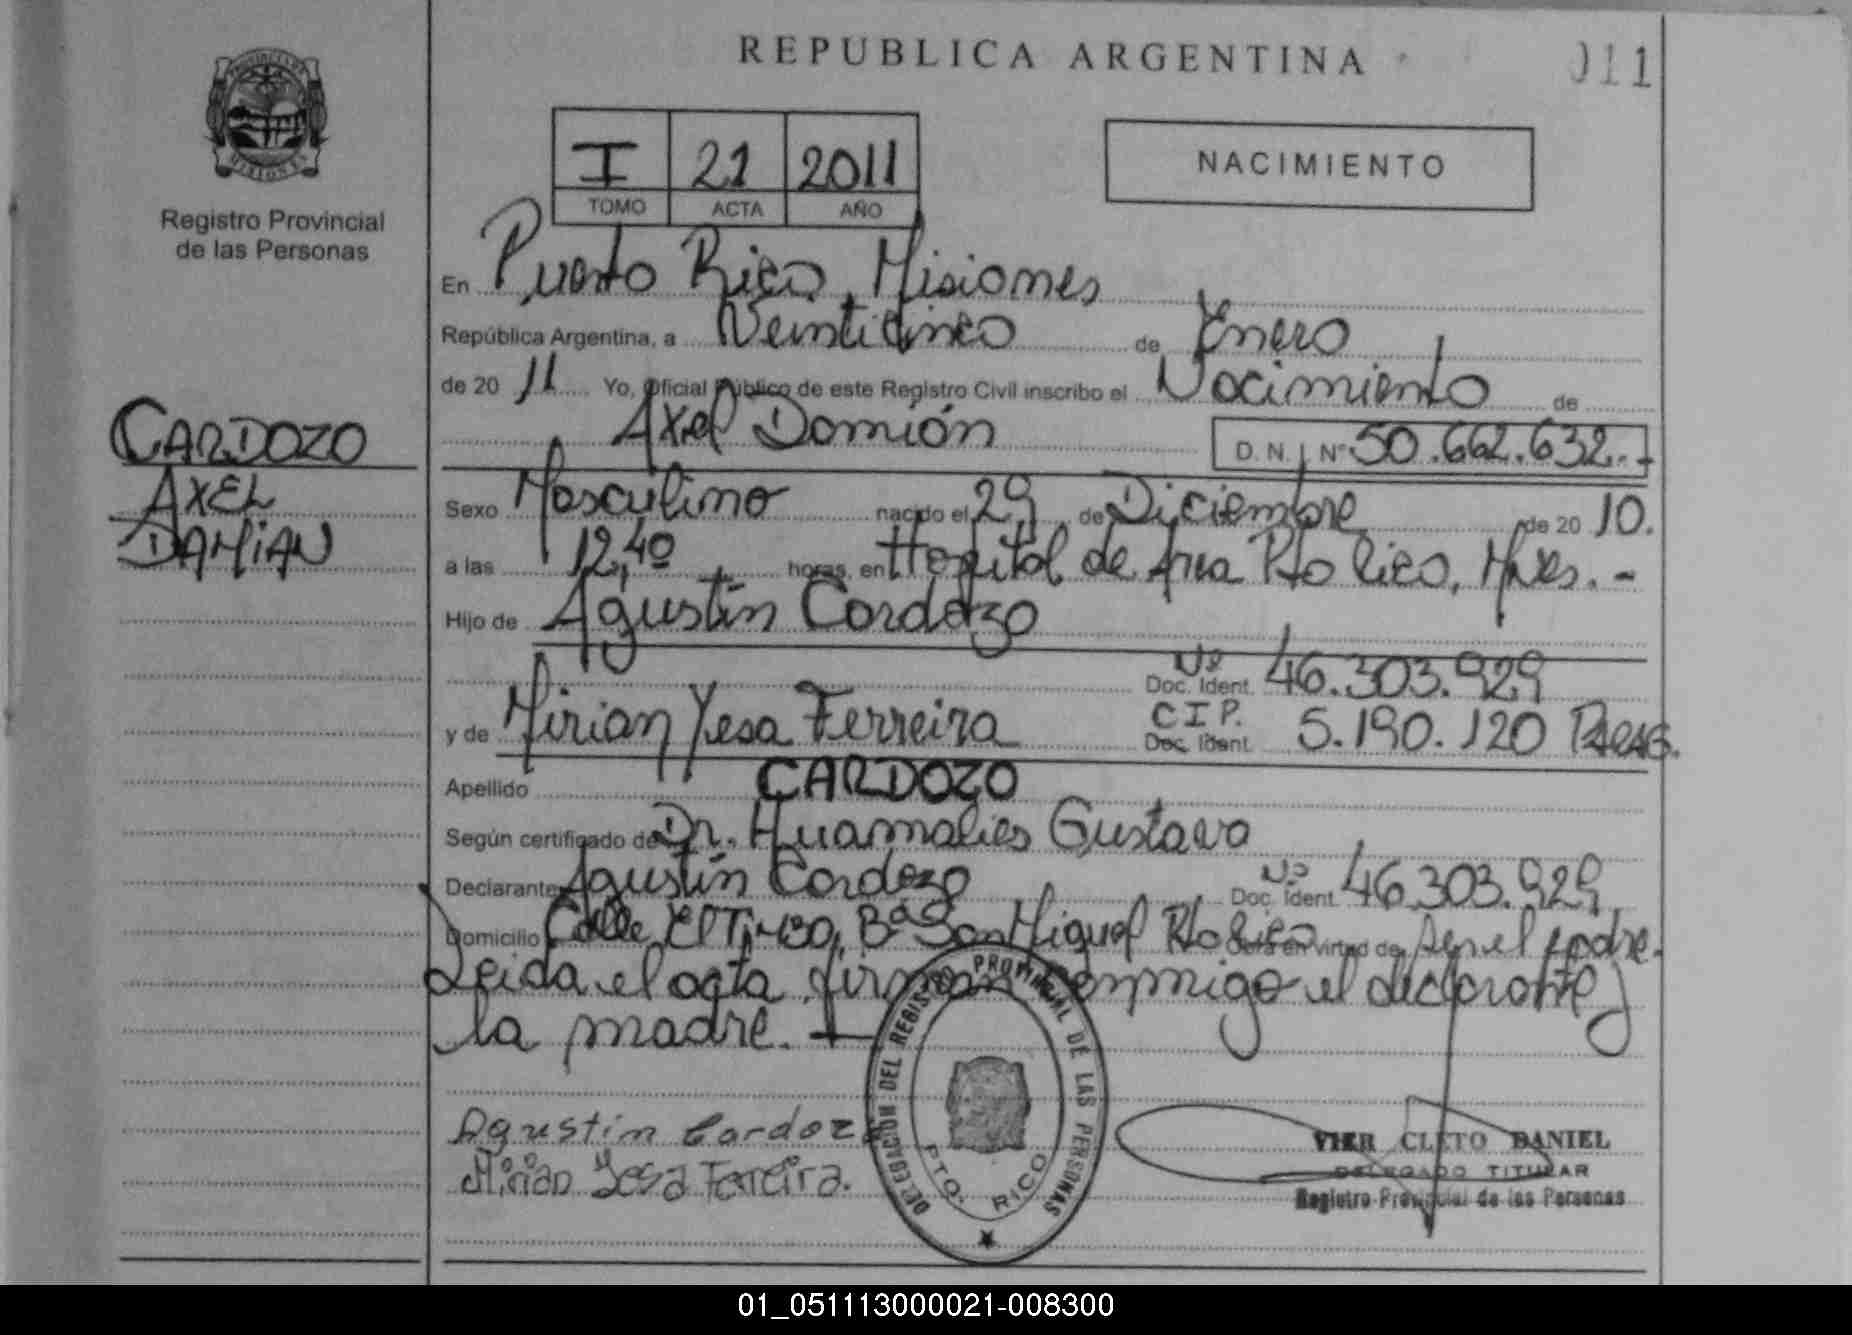 REPUBLICA ARGENTINA
011
PROVINCIA DE
MISIONES
Registro Provincial
de las Personas
I 21 2011
TOMO ACTA AÑO
NACIMIENTO
En Puerto Rico, Misiones
República Argentina, a Veinticinco de Enero
de 20 11 Yo, Oficial Público de este Registro Civil inscribo el Nacimiento de
Axel Damián D.N.I. Nº 50.662.632.-
CARDOZO
AXEL
DAMIAN
Sexo Masculino nacido el 29 de Diciembre de 20 10.
a las 12,40 horas, en Hospital de Area Pto Rico, Mnes.-
Hijo de Agustín Cardozo
Nº
Doc. Ident. 46.303.929
y de Mirian Yesa Ferreira
C I P.
Doc. Ident. 5.190.120
Apellido CARDOZO
Según certificado de Dr. Huamalies Gustavo
Declarante Agustín Cardozo Nº Doc. Ident. 46.303.929
Domicilio Calle El Bº San Miguel Pto Rico en virtud de padre.
Leida el acta firman conmigo el declarante y
la madre.
Agustin Cardoz
Mirian Yesa Ferreira.
DELEGACION DEL REGISTRO PROVINCIAL DE LAS PERSONAS
PTO. RICO
VIER CLETO DANIEL
DELEGADO TITULAR
Registro Provincial de las Personas
01_051113000021-008300